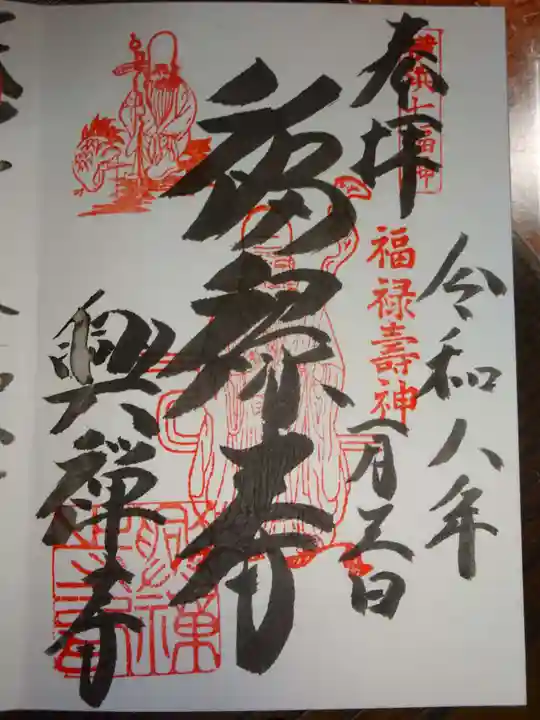 奉拝
七福神
福禄壽神
令和八年
一月三日
福禄寿
興禅寺